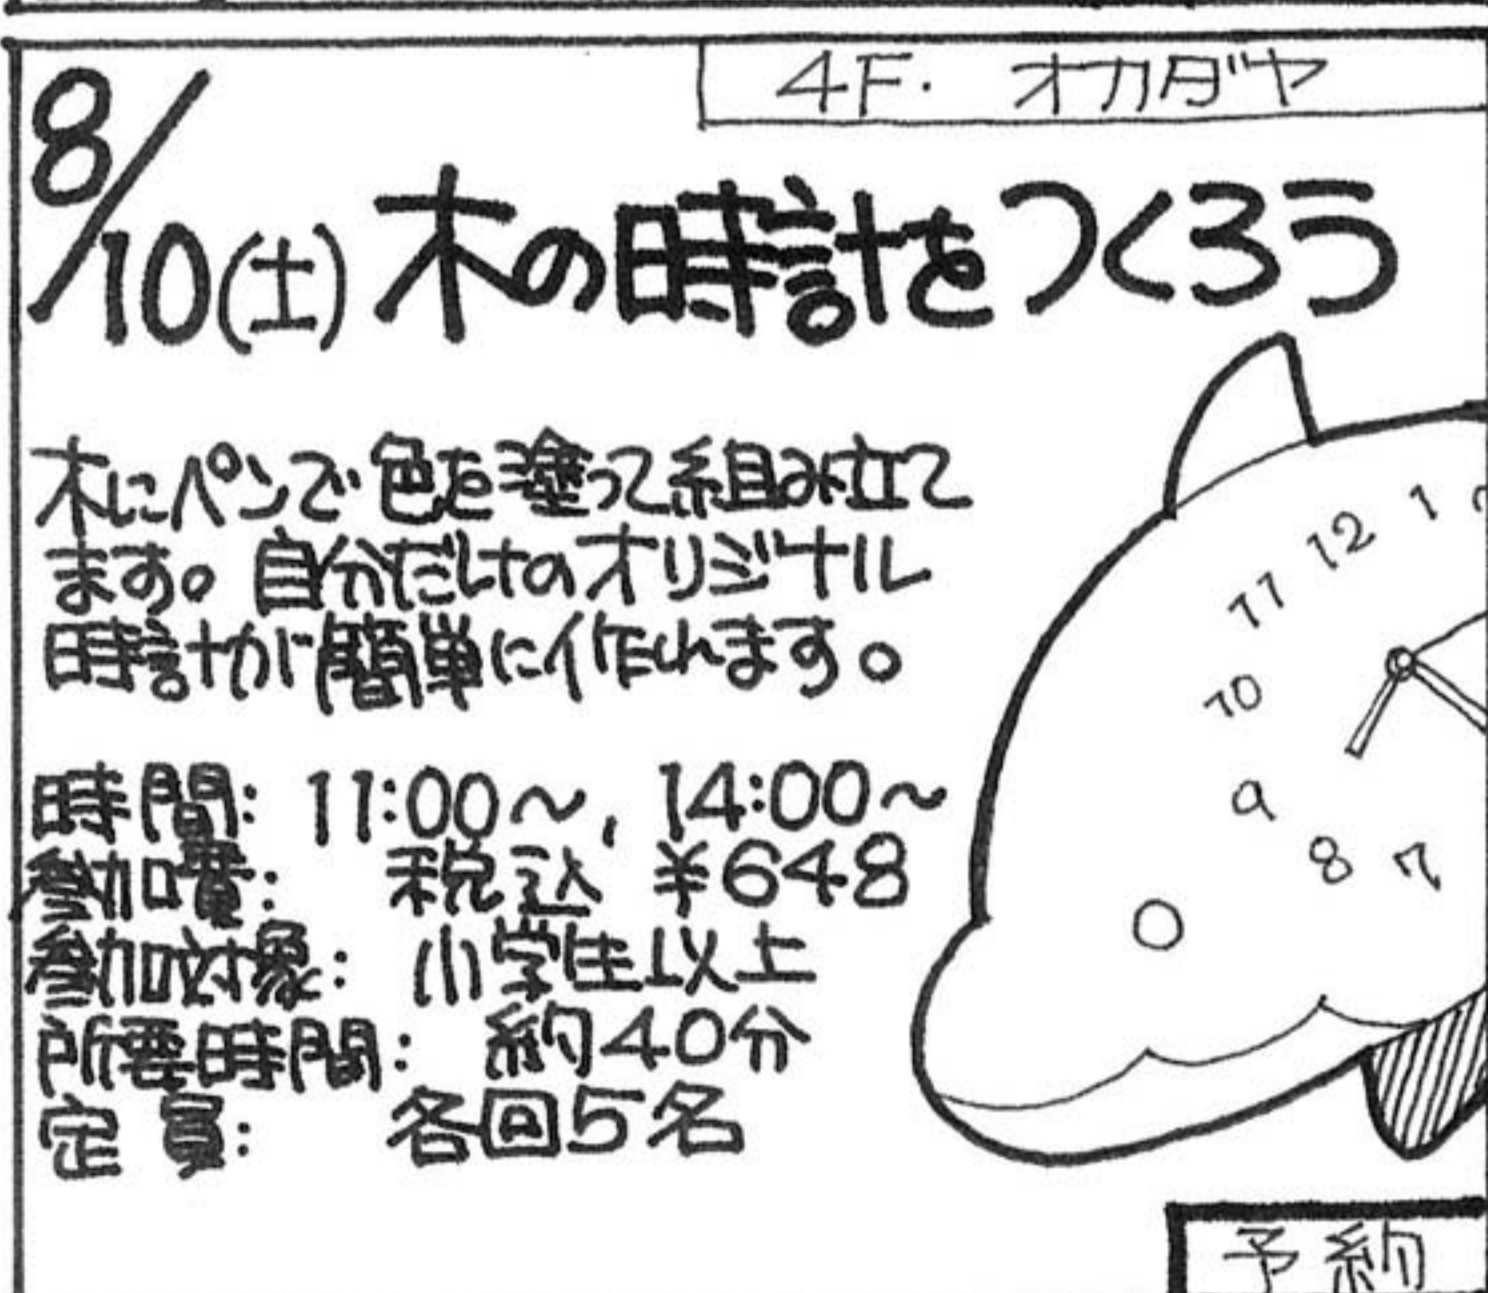 4F. オカダヤ
8/10(土) 木の時計をつくろう
木にペンで色を塗って組み立て
ます。自分だけのオリジナル
時計が簡単に作れます。
時間: 11:00～, 14:00～
参加費: 税込 ¥648
参加対象: 小学生以上
所要時間: 約40分
定員: 各回5名
12 1
11
10
9
8 7
予約